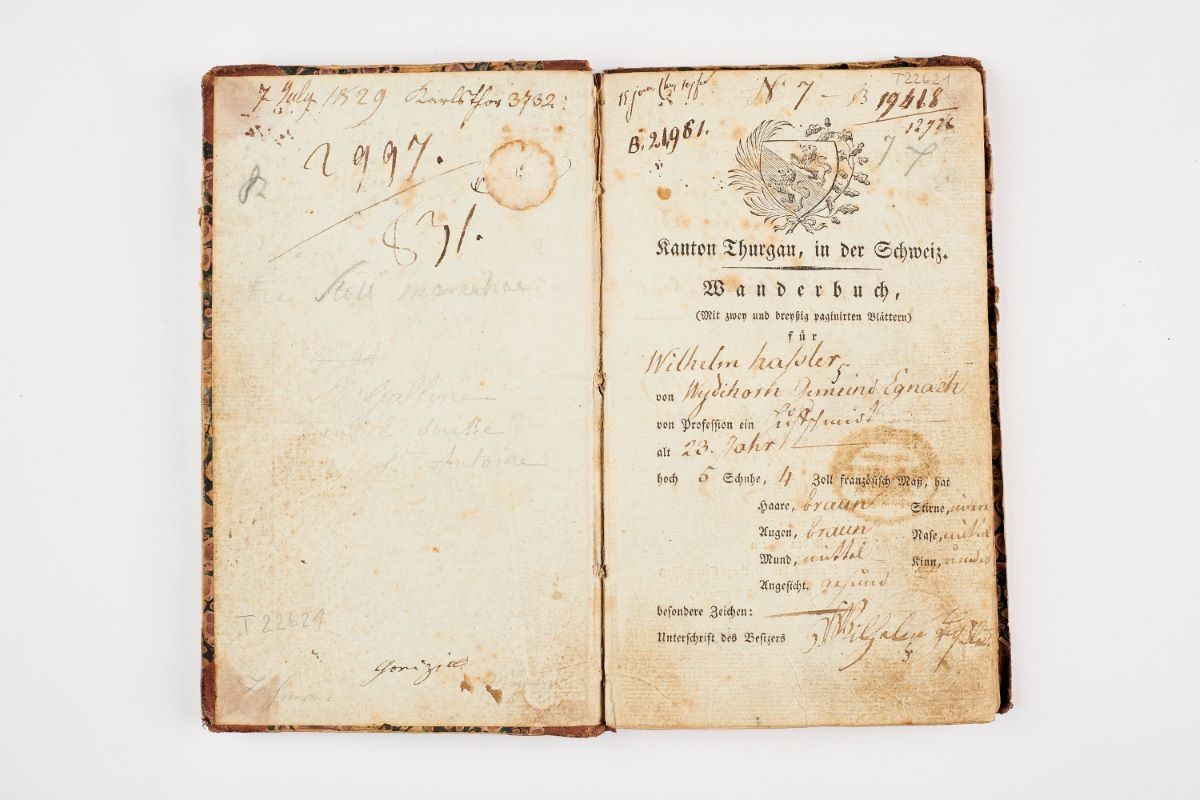 7. July 1829 Karlsthor 3732.
2997.
831.
Antoine
T 22621
Gorizia
T22621
N. 7 — B 19418
12726
B. 21,981.
77
Kanton Thurgau, in der Schweiz.
Wanderbuch,
(Mit zwey und dreyßig paginirten Blättern)
für
Wilhelm Haßler,
von Wydihorn Gemeind Egnach
von Profession ein Hufschmidt
alt 23. Jahr
hoch 5 Schuhe, 4 Zoll französisch Maß, hat
Haare, braun Stirne,
Augen, braun Nase, mittel
Mund, mittel Kinn, rundes
Angesicht. gesund
besondere Zeichen:
Unterschrift des Besizers Wilhelm